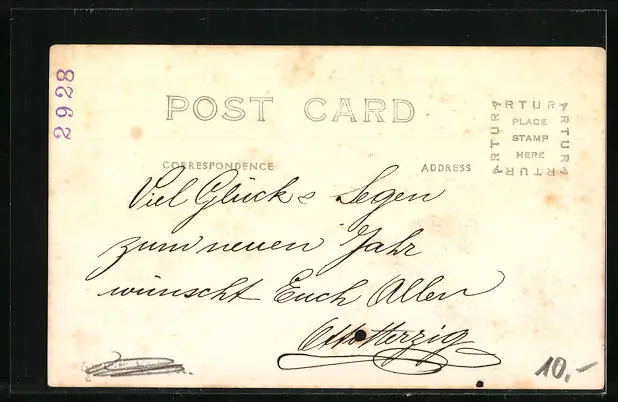 2928
POST CARD
ARTURA
ARTURA
ARTURA
ARTURA
PLACE
STAMP
HERE
CORRESPONDENCE
ADDRESS
Viel Glück & Segen
zum neuen Jahr
wünscht Euch Allen
Otto Herzig
10,-